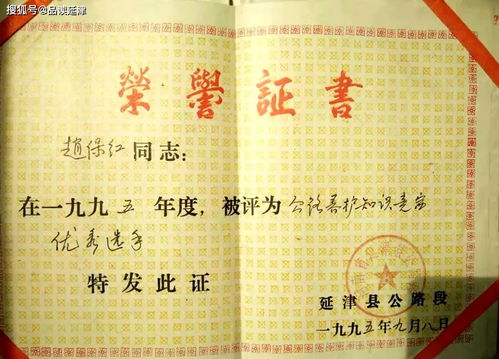 搜狐号@品读延津
榮譽証書
趙保红同志:
在一九九五年度,被评为公路养护知识竞赛
优秀选手
特发此证
延津县公路段
一九九五年九月八日